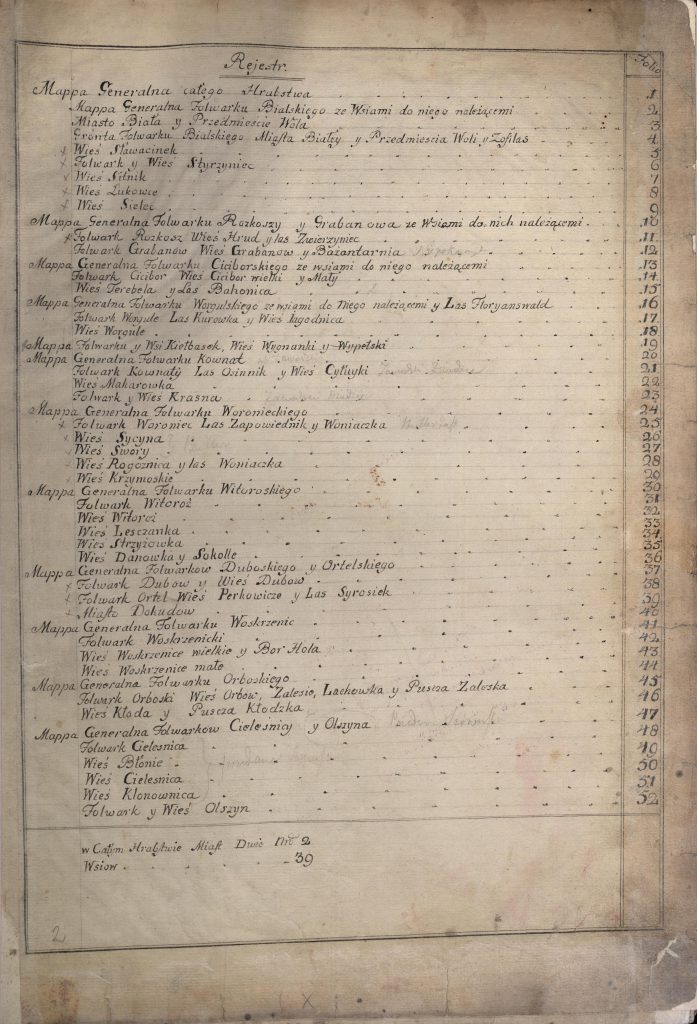 Rejestr.
Folio
Mappa Generalna całego Hrabstwa 1
Mappa Generalna Folwarku Bialskiego ze Wsiami do niego należącemi 2
Miasto Biała y Przedmieście Wola 3
Gronta Folwarku Bialskiego Miasta Biały y Przedmiescia Woli y Zofilas 4
Wieś Sławacinek 5
Folwark y Wieś Styrzyniec 6
Wieś Sitnik 7
Wieś Łukowce 8
Wieś Sielec 9
Mappa Generalna Folwarku Rozkoszy y Grabanowa ze Wsiami do nich należącemi 10
Folwark Rozkosz Wieś Hrud y las Zwierzyniec 11
Folwark Grabanów Wieś Grabanów y Bażantarnia 12
Mappa Generalna Folwarku Ciciborskiego ze wsiami do niego należącemi 13
Folwark Cicibor Wieś Cicibor wielki y Mały 14
Wieś Terebela y Las Bahonica 15
Mappa Generalna Folwarku Worgulskiego ze wsiami do niego należącemi y Las Floryanswald 16
Folwark Worgule Las Kurowka y Wieś Ługodnica 17
Wieś Worgule 18
Mappa Folwarku y Wsi Kiełbasek, Wieś Wygnanki y Wypelski 19
Mappa Generalna Folwarku Kownat 20
Folwark Kownaty Las Osinnik y Wieś Cyluyki 21
Wieś Makarowka 22
Folwark y Wieś Krasna 23
Mappa Generalna Folwarku Woronieckiego 24
Folwark Woroniec Las Zapowiednik y Woniaczka 25
Wieś Sycyna 26
Wieś Swory 27
Wieś Rogoznica y las Woniaczka 28
Wieś Krzymoskie 29
Mappa Generalna Folwarku Witoroskiego 30
Folwark Witoroż 31
Wieś Witoroż 32
Wieś Leszczanka 33
Wieś Strzyżowka 34
Wieś Danowka y Sokolle 35
Mappa Generalna Folwarkow Duboskiego y Ortelskiego 36
Folwark Dubow y Wieś Dubow 37
Folwark Ortel Wieś Perkowicze y Las Syrosiek 38
Miasto Dokudow 39
Mappa Generalna Folwarku Woskrzenic 40
Folwark Woskrzenicki 41
Wieś Woskrzenice wielkie y Bor Hola 42
Wieś Woskrzenice małe 43
Mappa Generalna Folwarku Orboskiego 44
Folwark Orboski Wieś Orbow, Zalesie, Lachowska y Puscza Zaleska 45
Wieś Kłoda y Puscza Kłodzka 46
Mappa Generalna Folwarkow Cieleśnicy y Olszyna 47
Folwark Cielesnica 48
Wieś Błonie 49
Wieś Cielesnica 50
Wieś Klonownica 51
Folwark y Wieś Olszyn 52
w Całym Hrabstwie Miast Dwie Nro 2
Wsiow 39
2